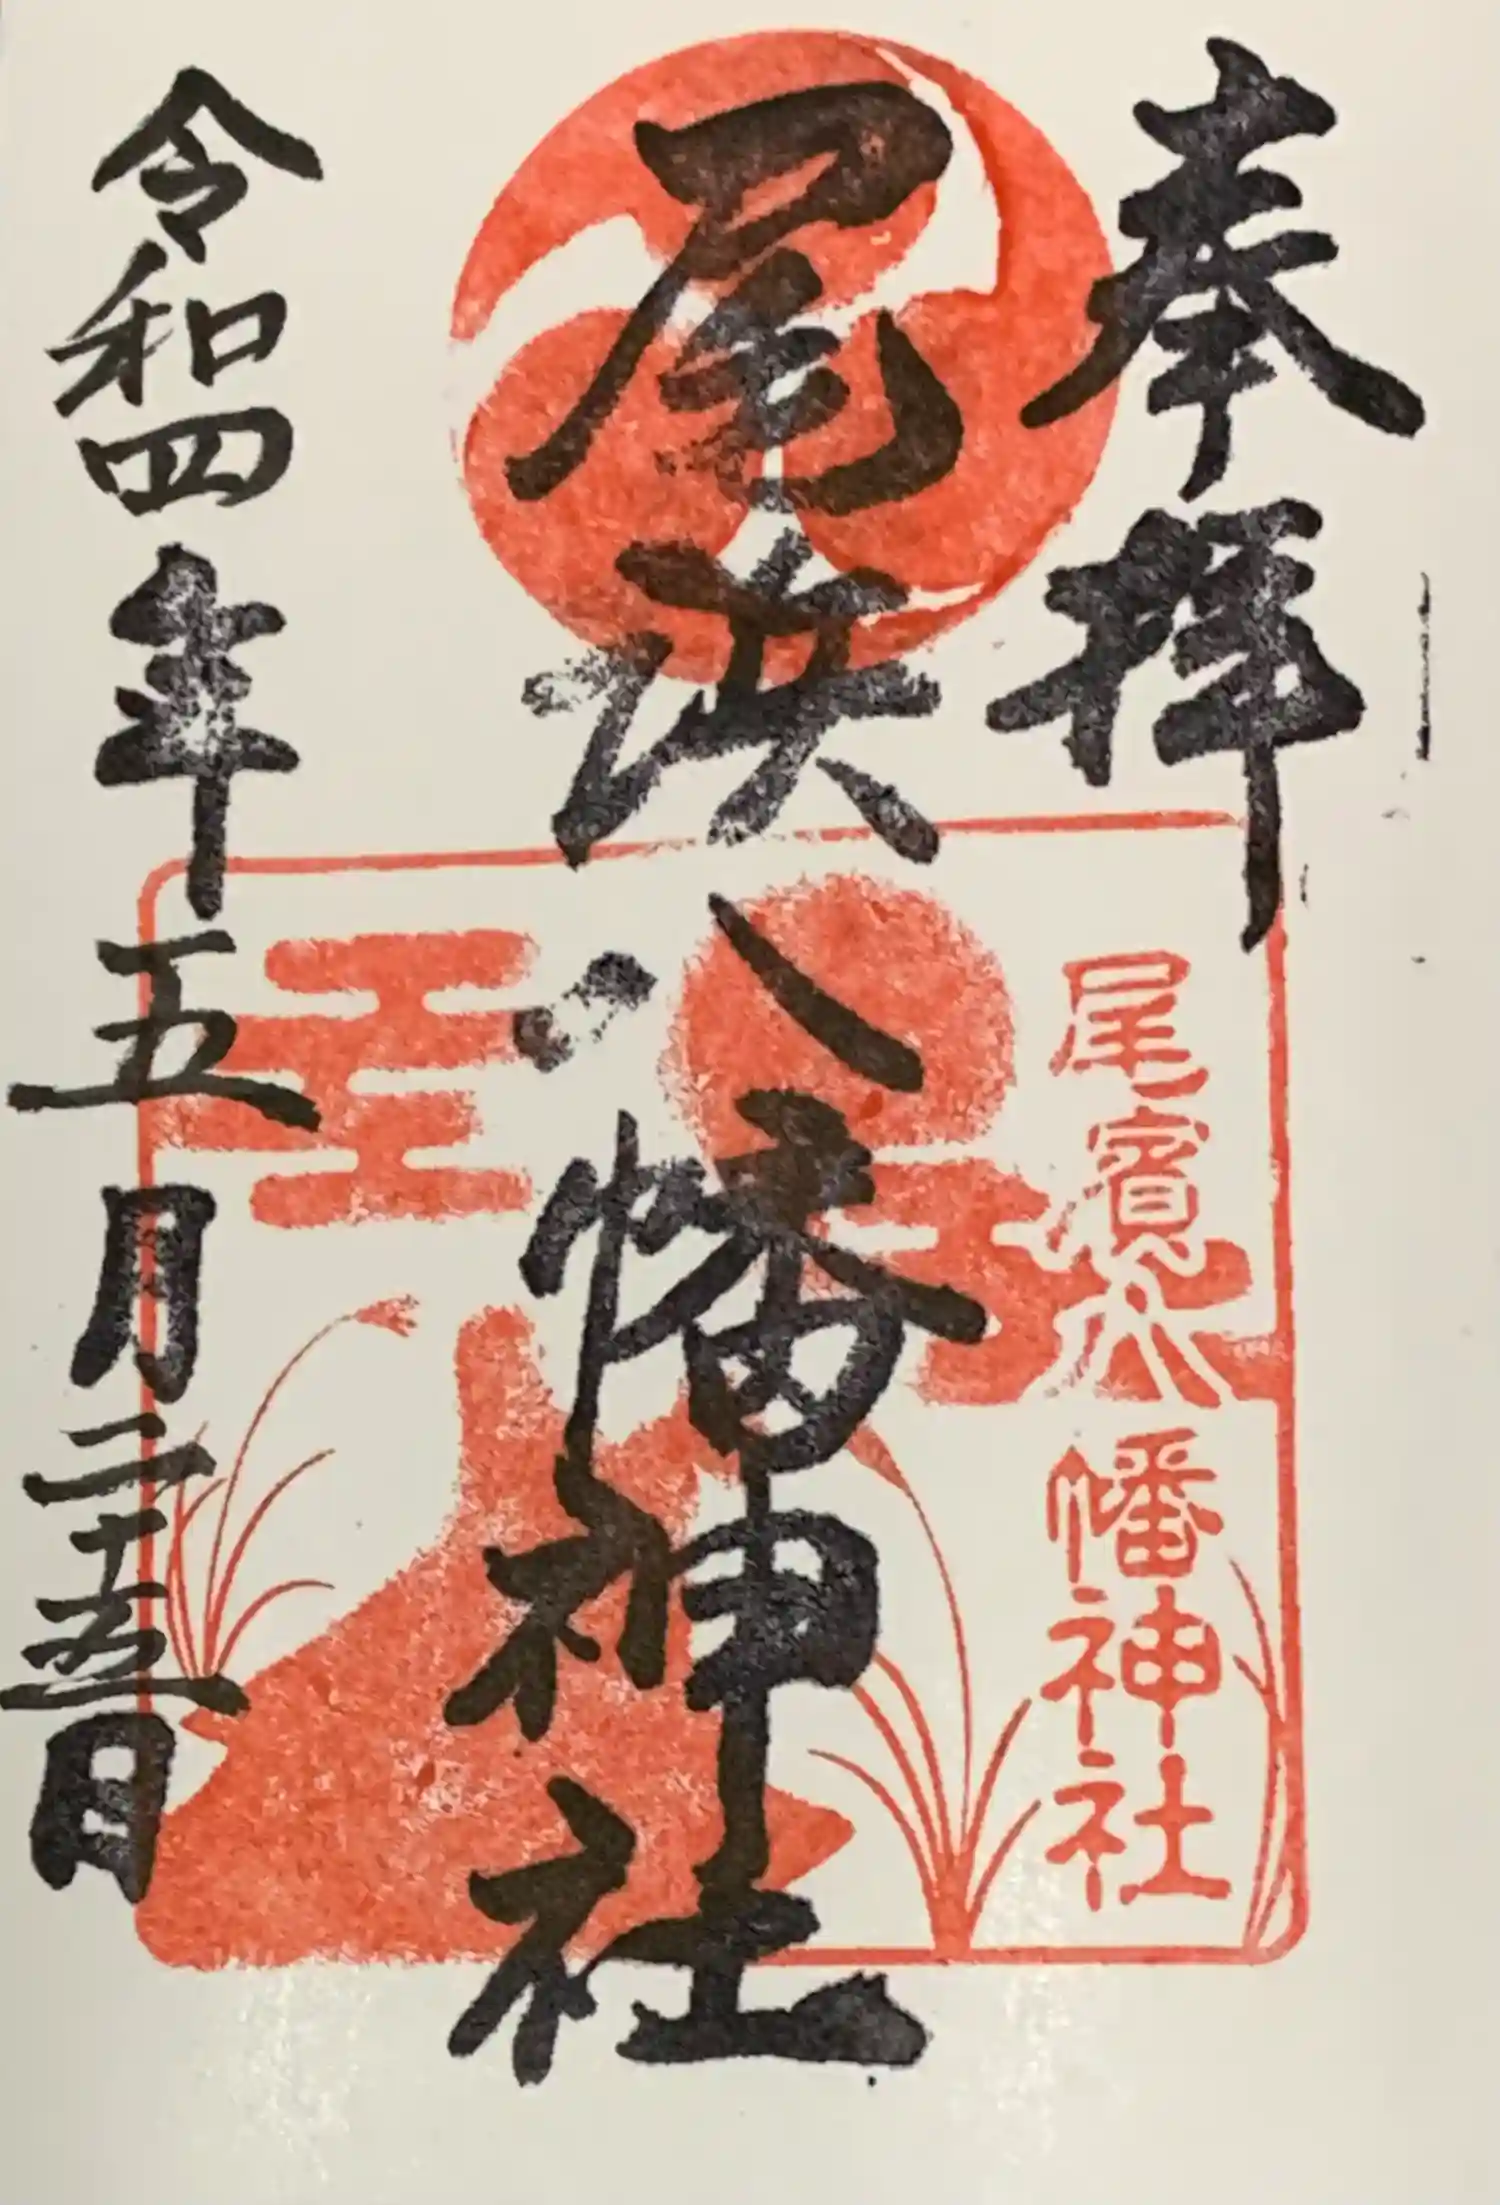 奉拝
尾濱八幡神社
尾浜八幡神社
令和四年五月二十五日